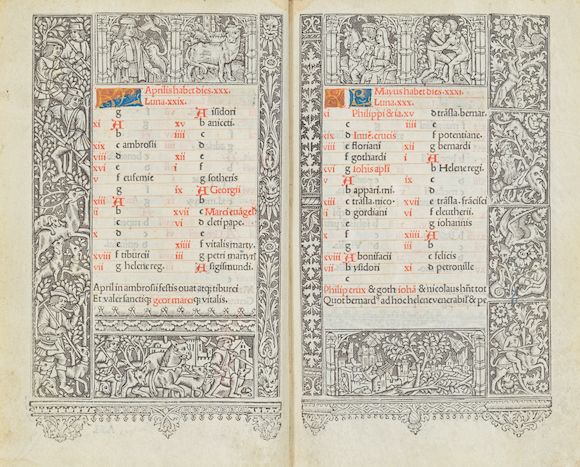 Aprilis habet dies. xxx.
Luna. xxix.
g
xi A
b
xix c ambrosii
viii d
e
v f eufemie
g
A
ii b
c
d
e
xviii f tiburcii
vii g helene reg.
A isidori
xv b aniceti.
iiii c
d
i e
f
ix g sotheris
A Georgii
b
xvii c Marci euãgel
vi d cleti pape.
e
xiiii f vitalis marty.
iii g petri martyr
A sigismundi.
April in ambrosii festis ouat atq; tiburci
Et valer sanctiq; geor marciq; vitalis.
Mayus habet dies. xxxi.
Luna. xxx.
xi Philippi & ia.
c
xix d
viii e floriani
f gothardi
xvi g
v A
b
xiii c
ii d gordiani
e
x f
g
xviii A bonifacii
vii b ysidori
xv d trãsla. bernar.
iiii e
f potentiane.
xii g bernardi
i A
b Helene regi.
ix c
d
xvii e trãsla. frãcisci
vi f eleutherii.
g iohannis
xiiii A
iii b
c felicis
xi d petronille
Philip crux & goth iohã & nicolaus
Quot bernard ad hoc helene venerabil & pe